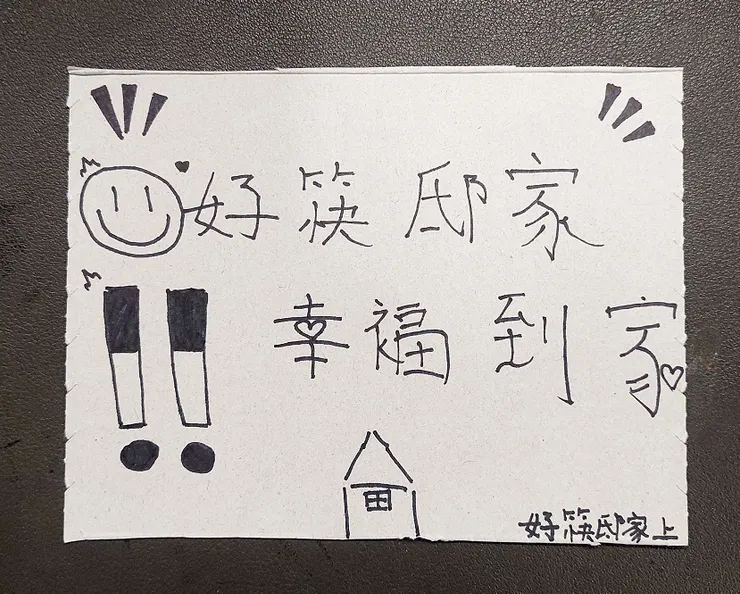 好筷邸家
幸福到家
好筷邸家上